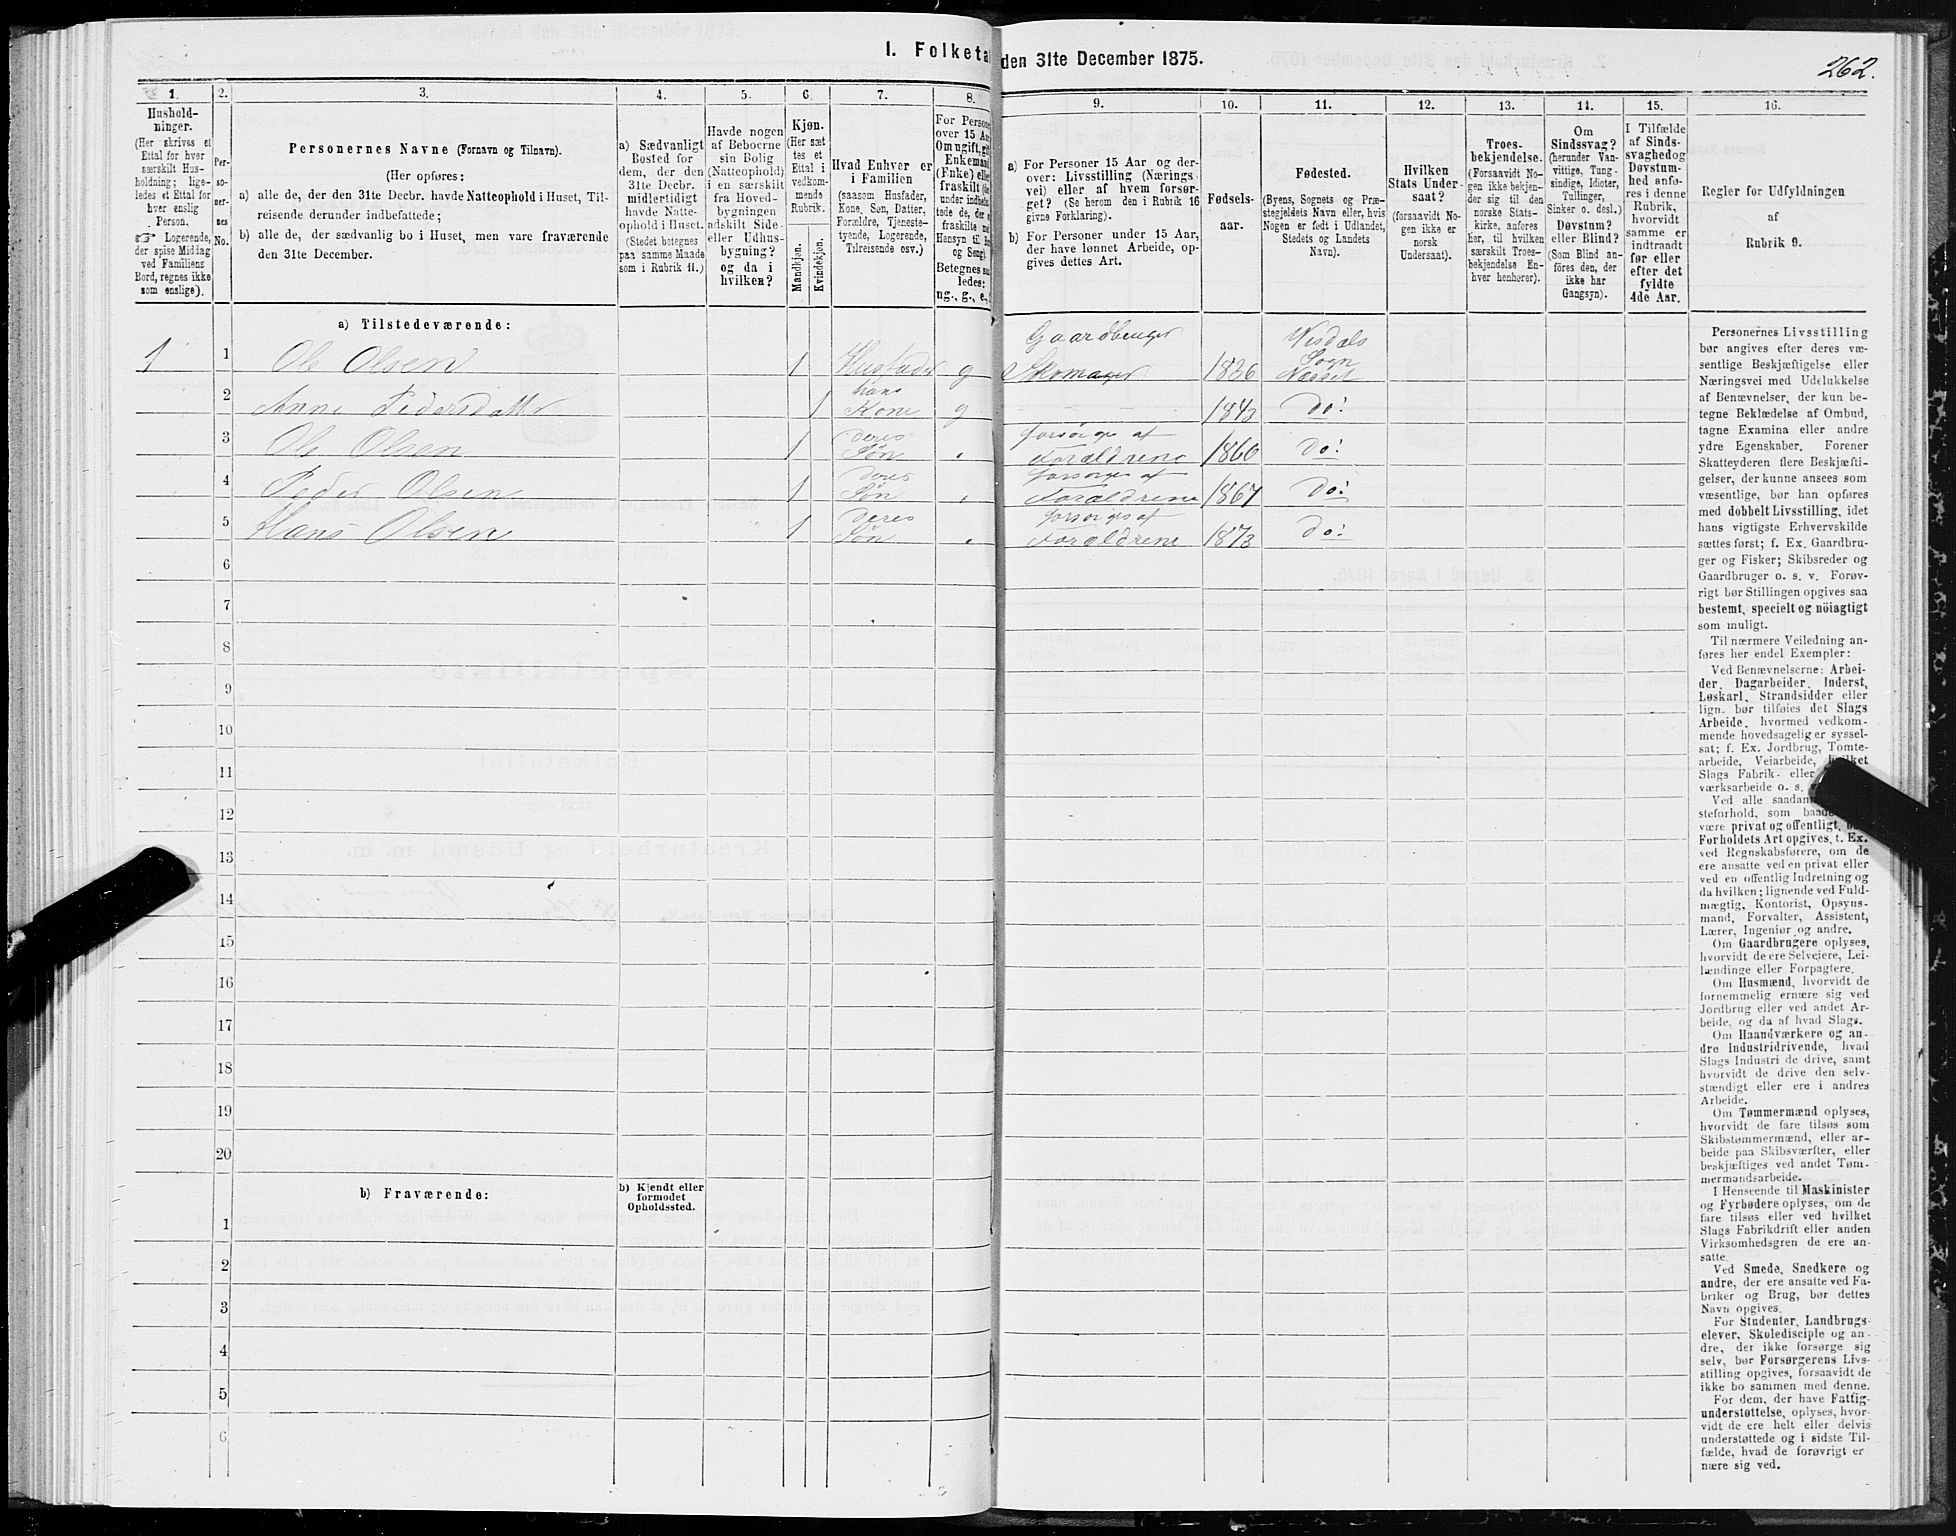 I. Folketa den 31te December 1875.
262.
1.
Hushold-
ninger.
(Her skrives et
Ettal for hver
særskilt Hus-
holdning; lige-
ledes et Ettal for
hver enslig
Person.
☞ Logerende,
der spise Middag
ved Familiens
Bord, regnes ikke
som enslige).
2.
Per-
so-
ner-
nes
No.
3.
Personernes Navne (Fornavn og Tilnavn).
(Her opføres:
a) alle de, der den 31te Decbr. havde Natteophold i Huset, Til-
reisende derunder indbefattede;
b) alle de, der sædvanlig bo i Huset, men vare fraværende
den 31te December.
4.
a) Sædvanligt
Bosted for
dem, der den
31te Decbr.
midlertidigt
havde Natte-
ophold i Huset.
(Stedet betegnes
paa samme Maade
som i Rubrik 11.)
5.
Havde nogen
af Beboerne
sin Bolig
(Natteophold)
i en særskilt
fra Hoved-
bygningen
adskilt Side-
eller Udhus-
bygning?
og da i
hvilken?
6.
Kjøn.
(Her sæt
tes et
Ettal i
vedkom-
mende
Rubrik.
Mandkjøn.
Kvindekjøn.
7.
Hvad Enhver er
i Familien
(saasom Husfader,
Kone, Søn, Datter,
Forældre, Tjeneste-
tyende, Logerende,
Tilreisende osv.)
8.
For Persone
over 15 Aa
Om ugift, gif
Enkemand
(Enke) elle
fraskilt (de
under indbefa
tede de, der
fraskilte me
Hensyn til Bo
og Seng).
Betegnes saa
ledes:
ug., g., e.,
9.
a) For Personer 15 Aar og der-
over: Livsstilling (Nærings-
vei) eller af hvem forsør-
get? (Se herom den i Rubrik 16
givne Forklaring).
b) For Personer under 15 Aar,
der have lønnet Arbeide, op-
gives dettes Art.
10.
Fødsels-
aar.
11.
Fødested.
(Byens, Sognets og Præ-
stegjeldets Navn eller, hvis
Nogen er født i Udlandet,
Stedets og Landets
Navn).
12.
Hvilken
Stats Under-
saat?
(forsaavidt No-
gen ikke er
norsk
Undersaat).
13.
Troes-
bekjendelse.
(Forsaavidt No-
gen ikke bekjen-
der sig til den
norske Stats-
kirke, anføres
her, til hvilken
særskilt Troes-
bekjendelse En-
hver henhører).
14.
Om
Sindssvag?
(herunder Van-
vittige, Tung-
sindige, Idioter,
Tullinger,
Sinker o. desl.)
Døvstum?
eller Blind?
(Som Blind an-
føres den, der
ikke har
Gangsyn).
15.
I Tilfælde
af Sinds-
svaghed og
Døvstum-
hed anfø-
res i denne
Rubrik,
hvorvidt
samme er
indtraadt
før eller
efter det
fyldte
4de Aar.
16.
Regler for Udfyldningen
af
Rubrik 9.
a) Tilstedeværende:
1 1 Ole Olsen 1 Husfader g Gaardbruger Skomager 1836 Visdals Sogn Næsset
2 Anne Pedersdatter 1 hans Kone g 1843 Do:
3 Ole Olsen 1 deres Søn forsørges af Forældrene 1860 Do:
4 Peder Olsen 1 deres Søn forsørges af Forældrene 1867 Do:
5 Hans Olsen 1 deres Søn forsørges af Forældrene 1873 Do:
6
7
8
9
10
11
12
13
14
15
16
17
18
19
20
b) Fraværende:
b) Kjendt eller
formodet
Opholdssted.
1
2
3
4
5
6
Personernes Livsstilling
bør angives efter deres væ-
sentlige Beskjæftigelse eller
Næringsvei med Udelukkelse
af Benævnelser, der kun be-
tegne Beklædelse af Ombud,
tagne Examina eller andre
ydre Egenskaber. Forener
Skatteyderen flere Beskjæfti-
gelser, der kunne ansees som
væsentlige, bør han opføres
med dobbelt Livsstilling, idet
hans vigtigste Erhvervskilde
sættes først; f. Ex. Gaardbru-
ger og Fisker; Skibsreder og
Gaardbruger o. s. v. Forøv-
rigt bør Stillingen opgives saa
bestemt, specielt og nöiagtigt
som muligt.
Til nærmere Veiledning an-
føres her endel Exempler:
Ved Benævnelserne: Arbei-
der, Dagarbeider, Inderst,
Løskarl, Strandsidder eller
lign. bør tilføies det Slags
Arbeide, hvormed vedkom-
mende hovedsagelig er syssel-
sat; f. Ex. Jordbrug, Tomte-
arbeide, Veiarbeide, hvilket
Slags Fabrik- eller
værksarbeide o. s.
Ved alle saadan
steforhold, som baade
være privat og offentligt, bør
Forholdets Art opgives, t. Ex.
ved Regnskabsførere, om de
ere ansatte ved en privat eller
ved en offentlig Indretning og
da hvilken; lignende ved Fuld-
mægtig, Kontorist, Opsyns-
mand, Forvalter, Assistent,
Lærer, Ingeniør og andre.
Om Gaardbrugere oplyses,
hvorvidt de ere Selveiere, Lei-
lændinge eller Forpagtere.
Om Husmænd, hvorvidt de
fornemmelig ernære sig ved
Jordbrug eller ved andet Ar-
beide, og da af hvad Slags.
Om Haandværkere og an-
dre Industridrivende, hvad
Slags Industri de drive, samt
hvorvidt de drive den selv-
stændigt eller ere i andres
Arbeide.
Om Tømmermænd oplyses,
hvorvidt de fare tilsøs som
Skibstømmermænd, eller ar-
beide paa Skibsværfter, eller
beskjæftiges ved andet Tøm-
mermandsarbeide.
I Henseende til Maskinister
og Fyrbødere oplyses, om de
fare tilsøs eller ved hvilket
Slags Fabrikdrift eller anden
Virksomhedsgren de ere an-
satte.
Ved Smede, Snedkere og
andre, der ere ansatte ved Fa-
briker og Brug, bør dettes
Navn opgives.
For Studenter, Landbrugs-
elever, Skoledisciple og an-
dre, der ikke forsørge sig
selv, bør Forsørgerens Livs-
stilling opgives, forsaavidt de
ikke bo sammen med denne.
For dem, der have Fattig-
understøttelse, oplyses, hvor-
vidt de ere helt eller delvis
understøttede og i sidste Til-
fælde, hvad de forøvrigt er
nære sig ved.